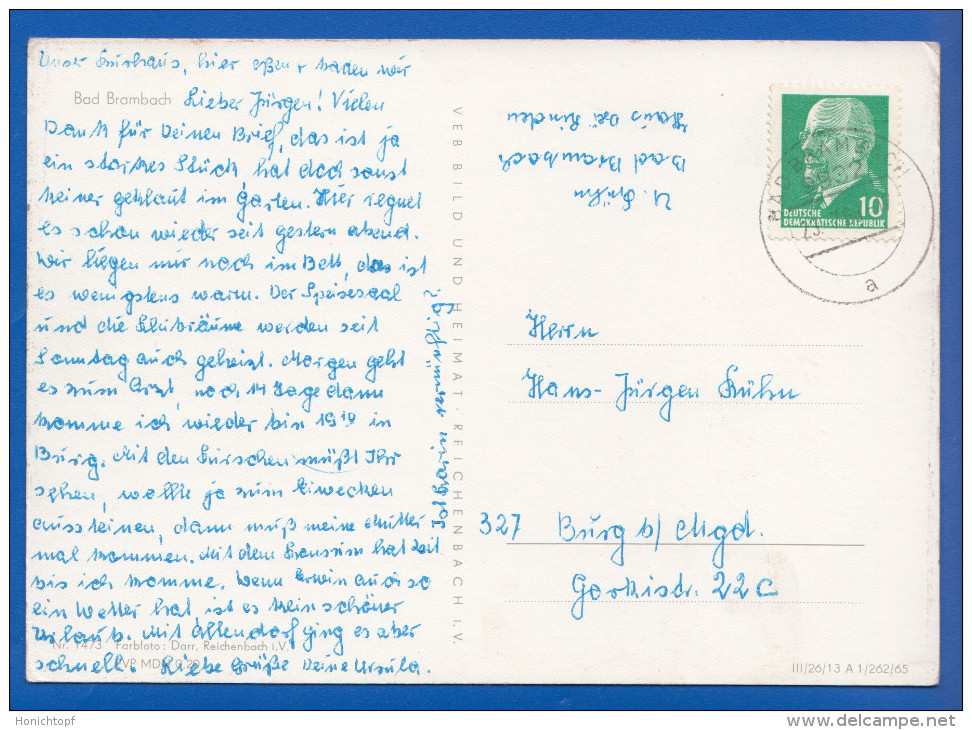 Unser Kurhaus, hier essen + baden wir
Bad Brambach Lieber Jürgen! Vielen
Dank für Deinen Brief, das ist ja
ein starkes Stück, hat doch sonst
keiner geklaut im Garten. Hier regnet
es schon wieder seit gestern abend.
Wir liegen nur noch im Bett, das ist
es wenigstens warm. Der Speisesaal
und die Klubräume werden seit
Sonntag auch geheizt. Morgen geht
es zum Arzt, noch 14 Tage dann
komme ich wieder bin 19 in
Burg. Mit den Kirschen müßt Ihr
sehen, wollte ja zum Einwecken
aussteinen, dann muß meine Mutter
mal kommen. Mit dem hat Zeit
bis ich komme. Wenn Erwin auch so
ein Wetter hat ist es kein schöner
Urlaub. Mit Allendorf ging es aber
schnell. Liebe Grüße Deine Ursula.
Ist Gorin vernünftig?
Nr. 1473 Farbfoto: Darr, Reichenbach i.V.
EVP MDN 0,20
VEB BILD UND HEIMAT · REICHENBACH I. V.
U. Kühn
Bad Brambach
Haus drei Linden
BAD BRAMBACH
a
10
DEUTSCHE
DEMOKRATISCHE REPUBLIK
Herrn
Hans-Jürgen Kühn
327 Burg b/ Mgd.
Gorkistr. 22c
III/26/13 A 1/262/65
Honichtopf
delcampe.net